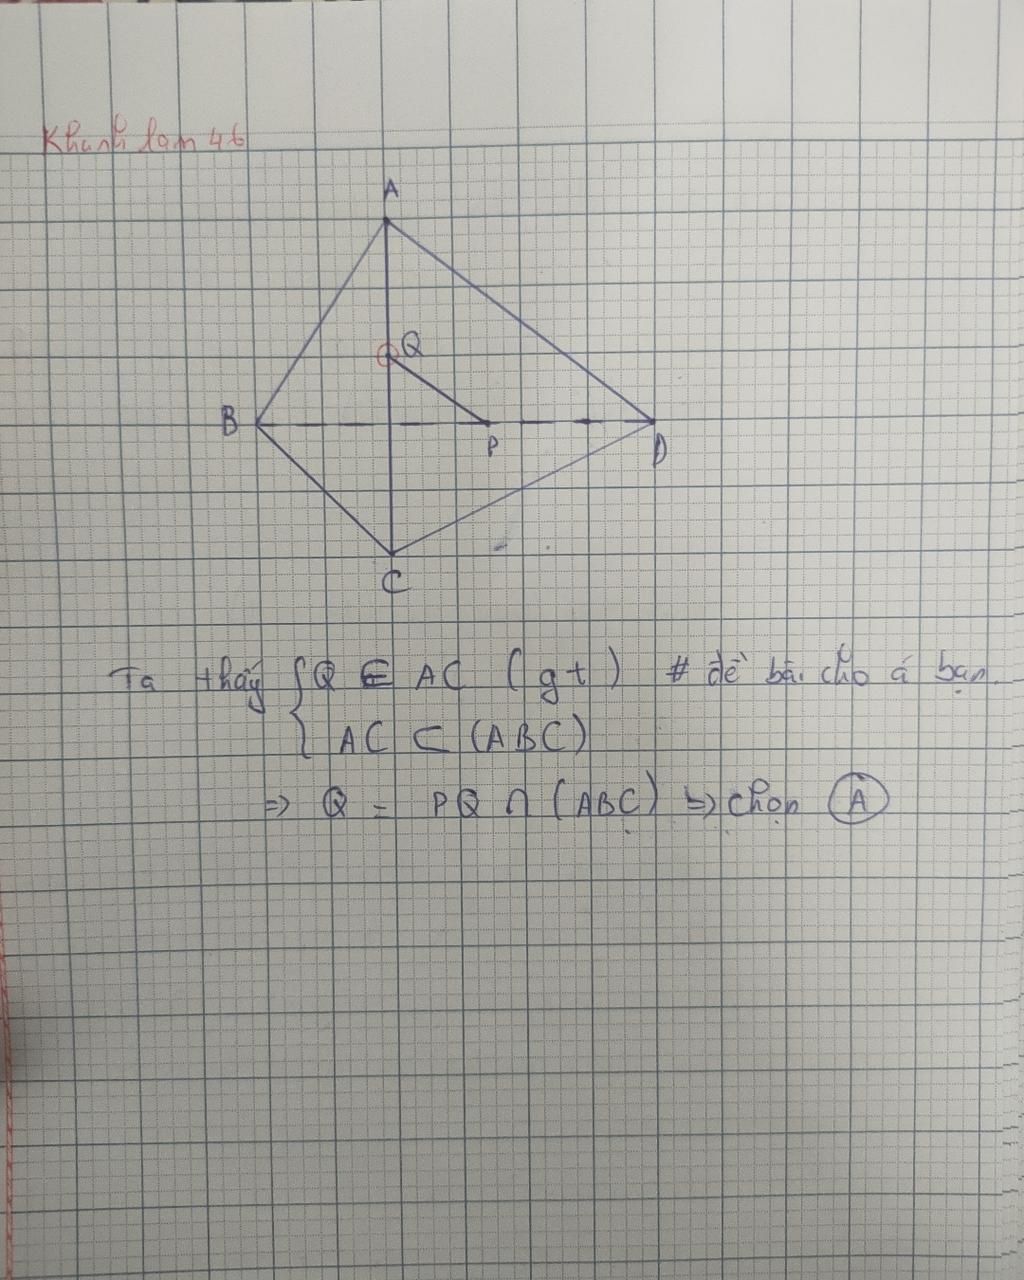 Khanh lam 46
A
Q
B
P
D
C
Ta thấy { Q ∈ AC (gt) # đề bài cho á bạn.
AC ⊂ (ABC)
=> Q = PQ ∩ (ABC) => chọn A